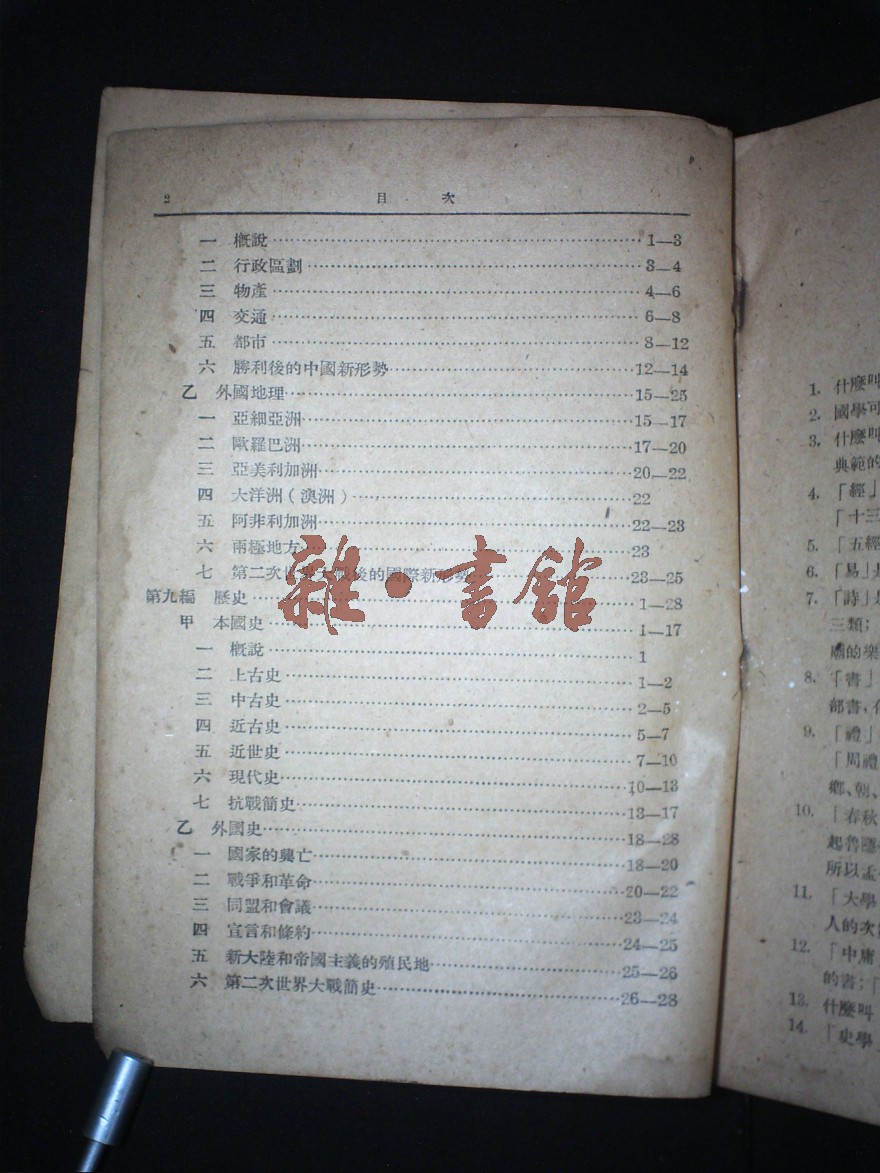 2 目次
一 概說 1—3
二 行政區劃 3—4
三 物產 4—6
四 交通 6—8
五 都市 8—12
六 勝利後的中國新形勢 12—14
乙 外國地理 15—25
一 亞細亞洲 15—17
二 歐羅巴洲 17—20
三 亞美利加洲 20—22
四 大洋洲(澳洲) 22
五 阿非利加洲 22—23
六 兩極地方 23
七 第二次世界大戰後的國際新形勢 23—25
第九編 歷史 1—28
甲 本國史 1—17
一 概說 1
二 上古史 1—2
三 中古史 2—5
四 近古史 5—7
五 近世史 7—10
六 現代史 10—13
七 抗戰簡史 13—17
乙 外國史 18—28
一 國家的興亡 18—20
二 戰爭和革命 20—22
三 同盟和會議 23—24
四 宣言和條約 24—25
五 新大陸和帝國主義的殖民地 25—26
六 第二次世界大戰簡史 26—28
雜·書館
1. 什麼叫
2. 國學可
3. 什麼叫
典範的
4. 「經」
「十三
5. 「五經
6. 「易」是
7. 「詩」是
三類;
廟的樂
8. 「書」
部書,
9. 「禮」
「周禮
鄉、朝、
10. 「春秋
起魯隱
所以孟
11. 「大學
人的次
12. 「中庸
的書;「
13. 什麼叫
14. 「史學